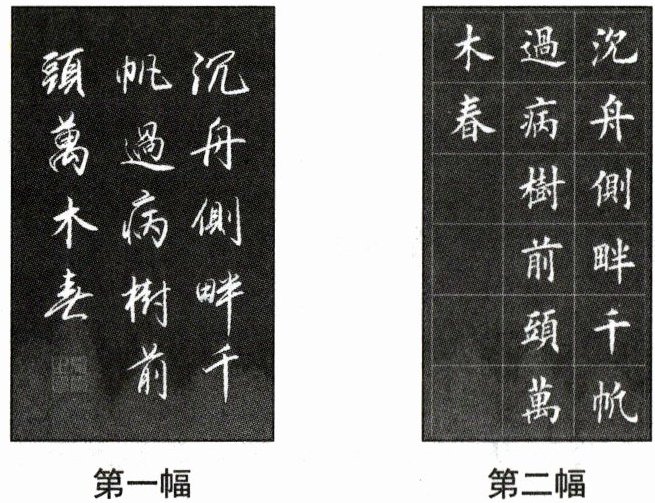 沉舟側畔千
帆過病樹前
頭萬木春
第一幅
沉舟側畔千帆
過病樹前頭萬
木春
第二幅